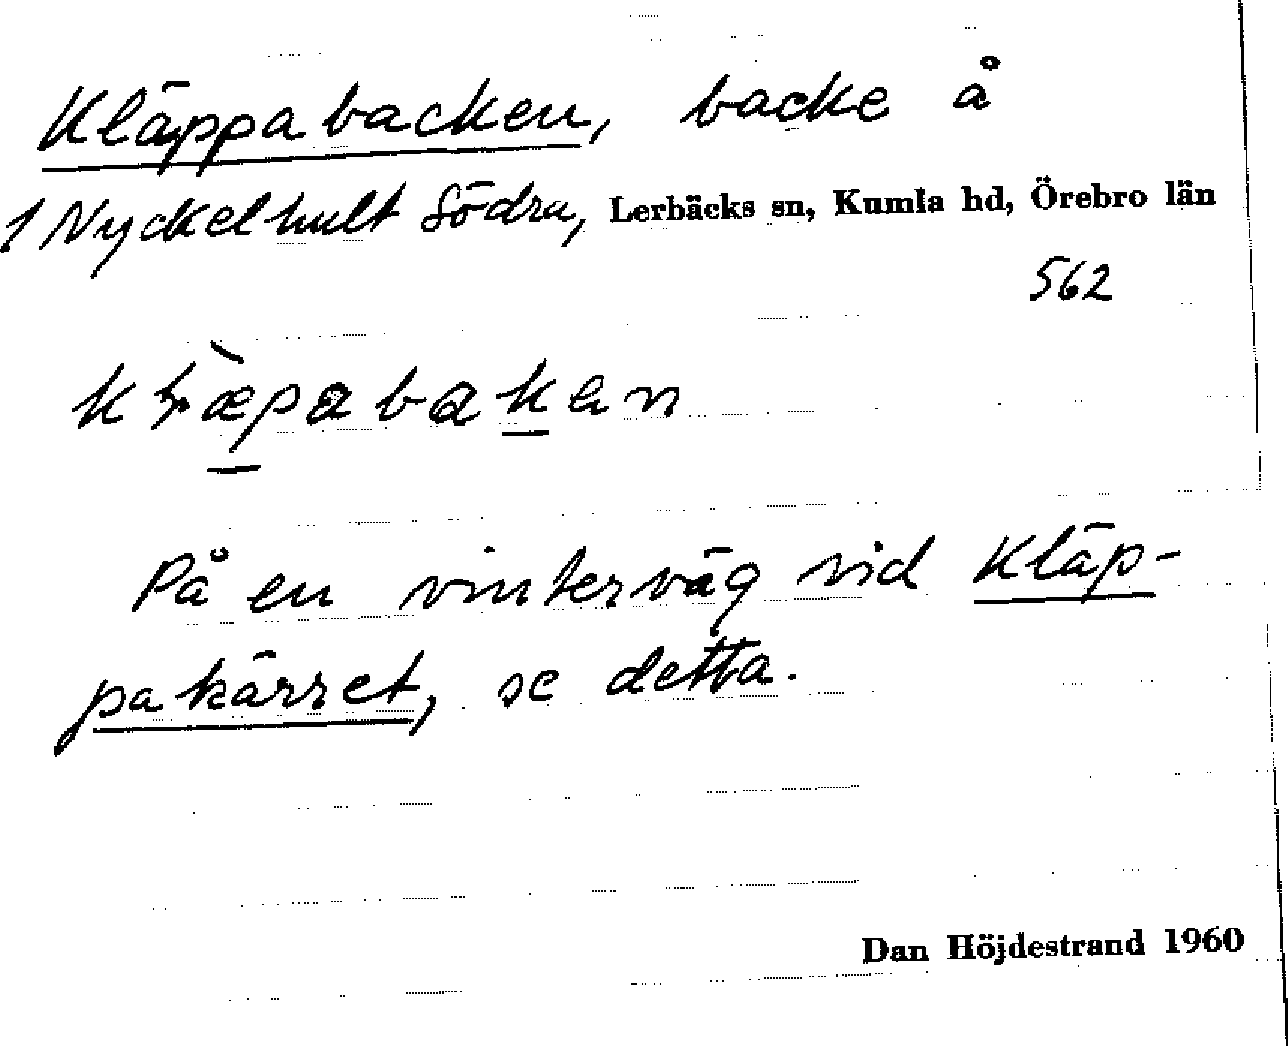 Kläppabacken, backe å
1 Nyckelhult Södra, Lerbäcks sn, Kumla hd, Örebro län
562
På en vinterväg vid Kläp-
pakärret, se detta.
Dan Höjdestrand 1960